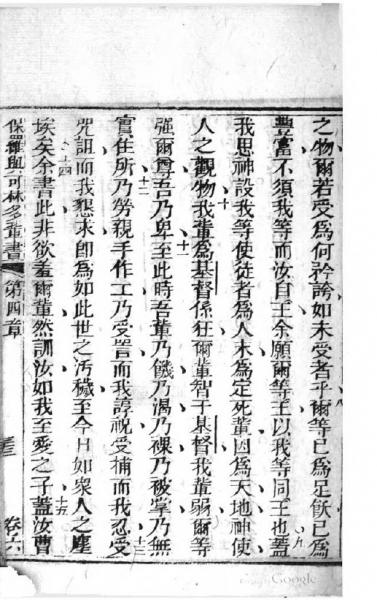 之物爾若受為何矜誇如未受者乎爾等已為足飲已為
豐富不須我等而汝自王余願爾等王以我等同王也蓋
我思神設我等使徒者為人末為定死輩因為天地神使
人之觀物我輩為基督係狂爾輩智于基督我輩弱爾等
強爾尊吾乃卑至此時吾輩乃饑乃渴乃裸乃被掌乃無
實住所乃勞親手作工乃受詈而我諄祝受捕而我忍受
咒詛而我懇求即為如此世之汚穢至今日如衆人之塵
埃矣余書此非欲羞爾輩然訓汝如我至愛之子蓋汝曹
保羅與可林多輩書 第四章 卷六
八
九
十
十一
十二
十三
十四
十五
Google